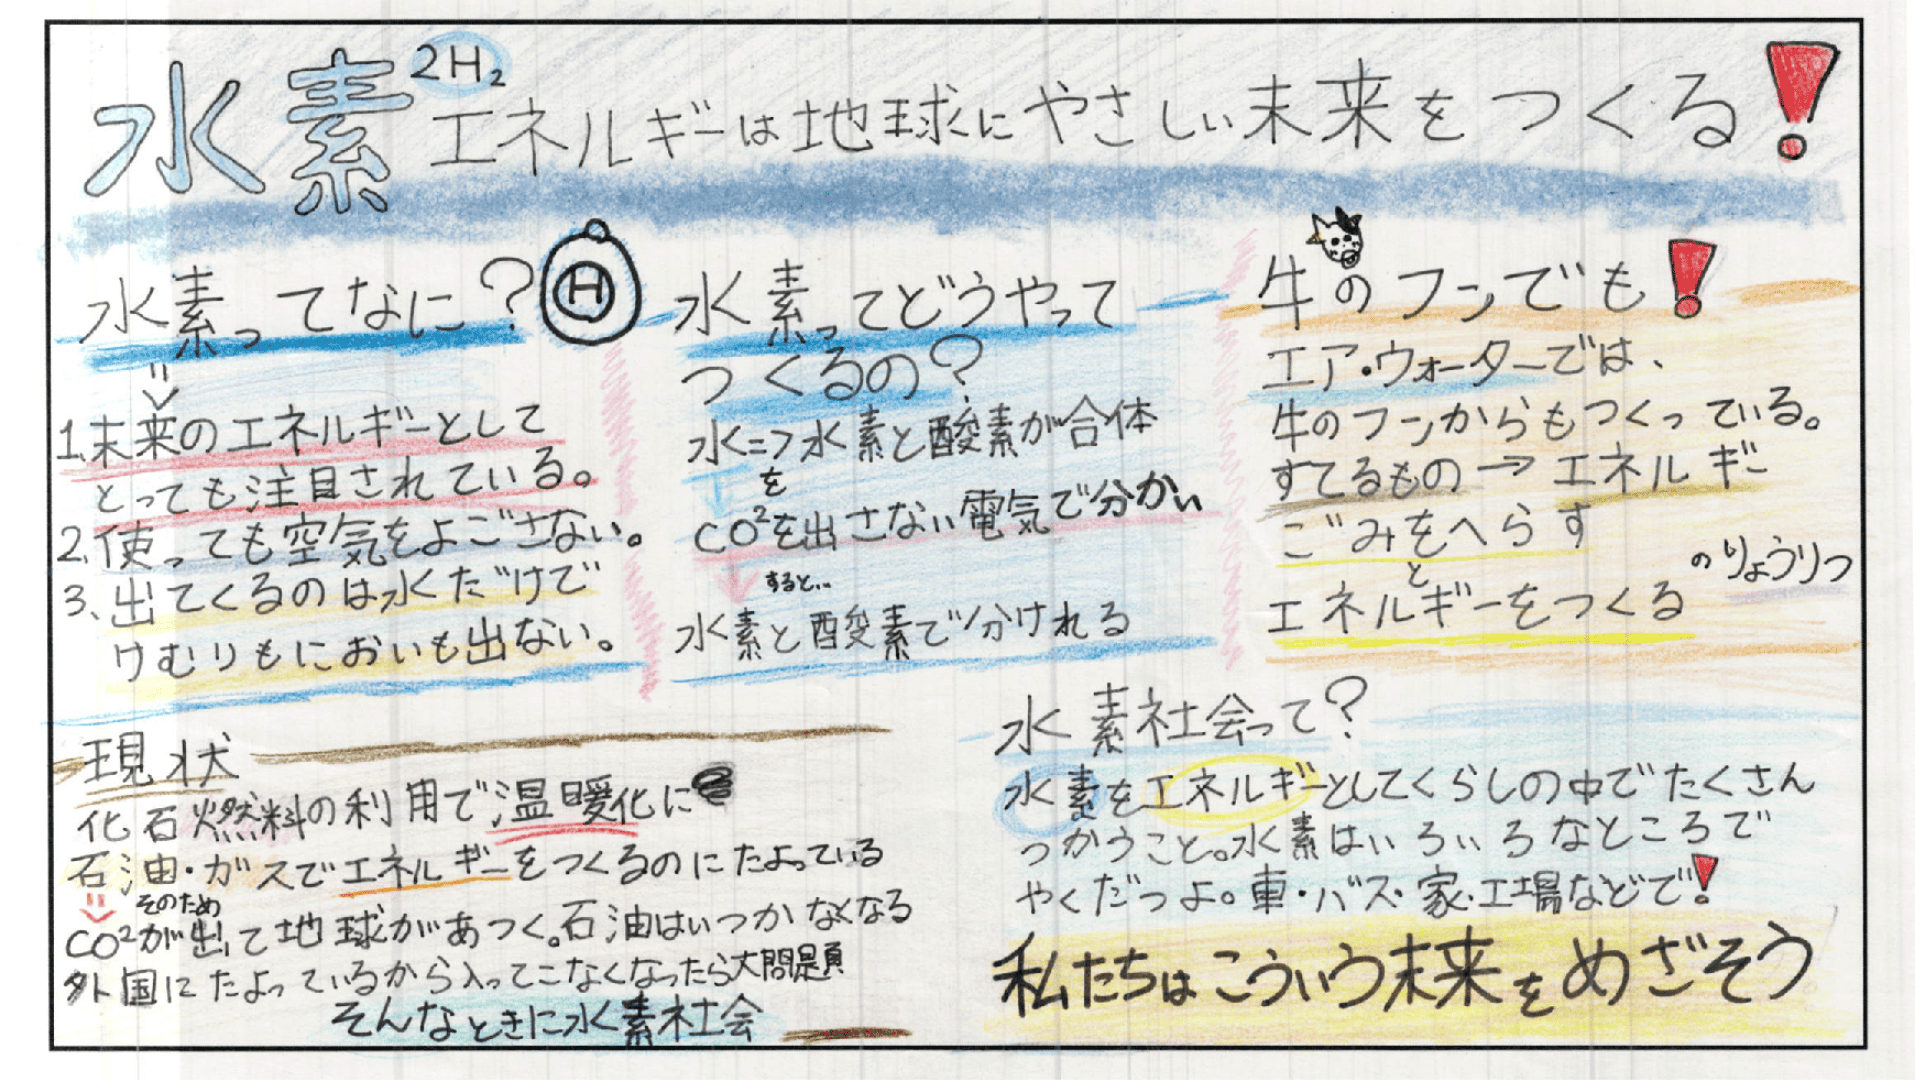 水素エネルギーは地球にやさしい未来をつくる!
2H₂
水素ってなに?
H
1.未来のエネルギーとして
とっても注目されている。
2.使っても空気をよごさない。
3、出てくるのは水だけで
けむりもにおいも出ない。
水素ってどうやって
つくるの?
水=>水素と酸素が合体
を
CO²を出さない電気で分かい
すると...
水素と酸素で分けれる
牛のフンでも!
エア・ウォーターでは、
牛のフンからもつくっている。
すてるもの→エネルギー
ごみをへらす
と
のりょうりつ
エネルギーをつくる
現状
化石燃料の利用で温暖化に
石油・ガスでエネルギーをつくるのにたよっている
そのため
CO²が出て地球があつく。石油はいつかなくなる
外国にたよっているから入ってこなくなったら大問題
そんなときに水素社会
水素社会って?
水素をエネルギーとしてくらしの中でたくさん
つかうこと。水素はいろいろなところで
やくだつよ。車・バス・家・工場などで!
私たちはこういう未来をめざそう